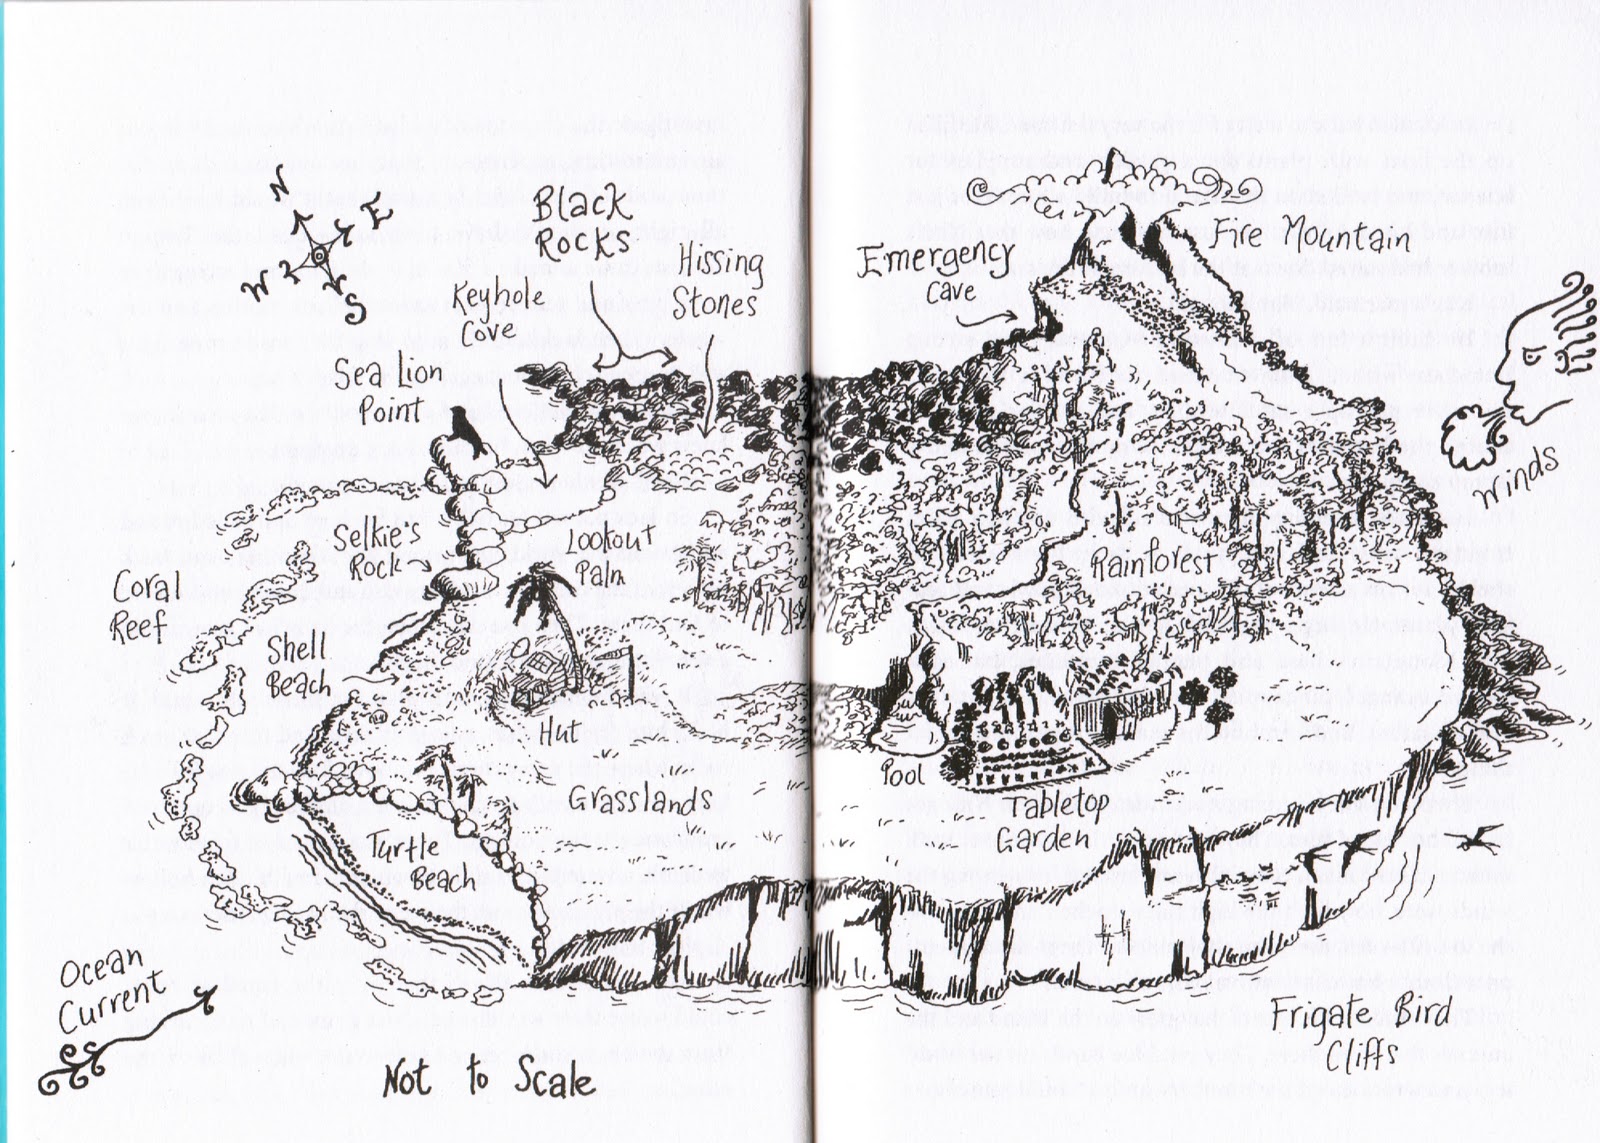 N
E
W
S
Black
Rocks
Keyhole
Cove
Hissing
Stones
Sea Lion
Point
Emergency
Cave
Fire Mountain
Winds
Selkie's
Rock
Lookout
Palm
Rainforest
Coral
Reef
Shell
Beach
Hut
Pool
Grasslands
Tabletop
Garden
Turtle
Beach
Ocean
Current
Frigate Bird
Cliffs
Not to Scale